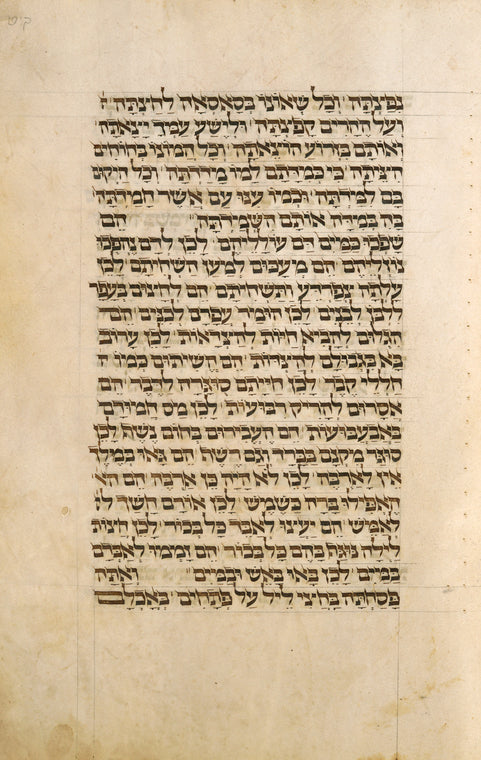 קיט
נפצתה וכל שאונו בסאסאה לחצתה
ועל ההרים קפצתה ולישע עמך יצאתה
ואותם בזרוע הוצאתה וכל המונו בחוחים
הציתה כי במידתם למו מדדתה וכל היקום
בם למדתה וכמו ענו עם אשר חמדתה
בה במידה אותם השמדתה הם
שפכו במים דם עולליהם לכן לדם נהפכו
נוזליהם הם מעכום למען השחיתם לכן
עלתה צפרדע ותשחיתם הם לחצום בעפר
ללבן לבנים לכן הומיר עפרם לכנים הם
הגלום להביא חיות לחצרות לכן ערוב
בא בגבולם להצרות הם חשיתום כמו ה
חללי קבר לכן חייתם סוגרה לדבר הם
אסרום להריק רבועות לכן מס חמורם
באבעבועות הם העבירום בחום נשף לכן
סוער מקנם בברד וגם רשף הם גאו במלך
אין לארבה לכן לא היה כן ארבה הם הא
האפילו ברה כשמש לכן אורם חשך לו
לאמש הם יעצו לאבד כל בכור לכן חצית
לילה נוגף בהם כל בכור הם זממו לאבדם
במים לכן באו באש ובמים ואתה
פסחתה בחצי ליל על פתחים באכלם